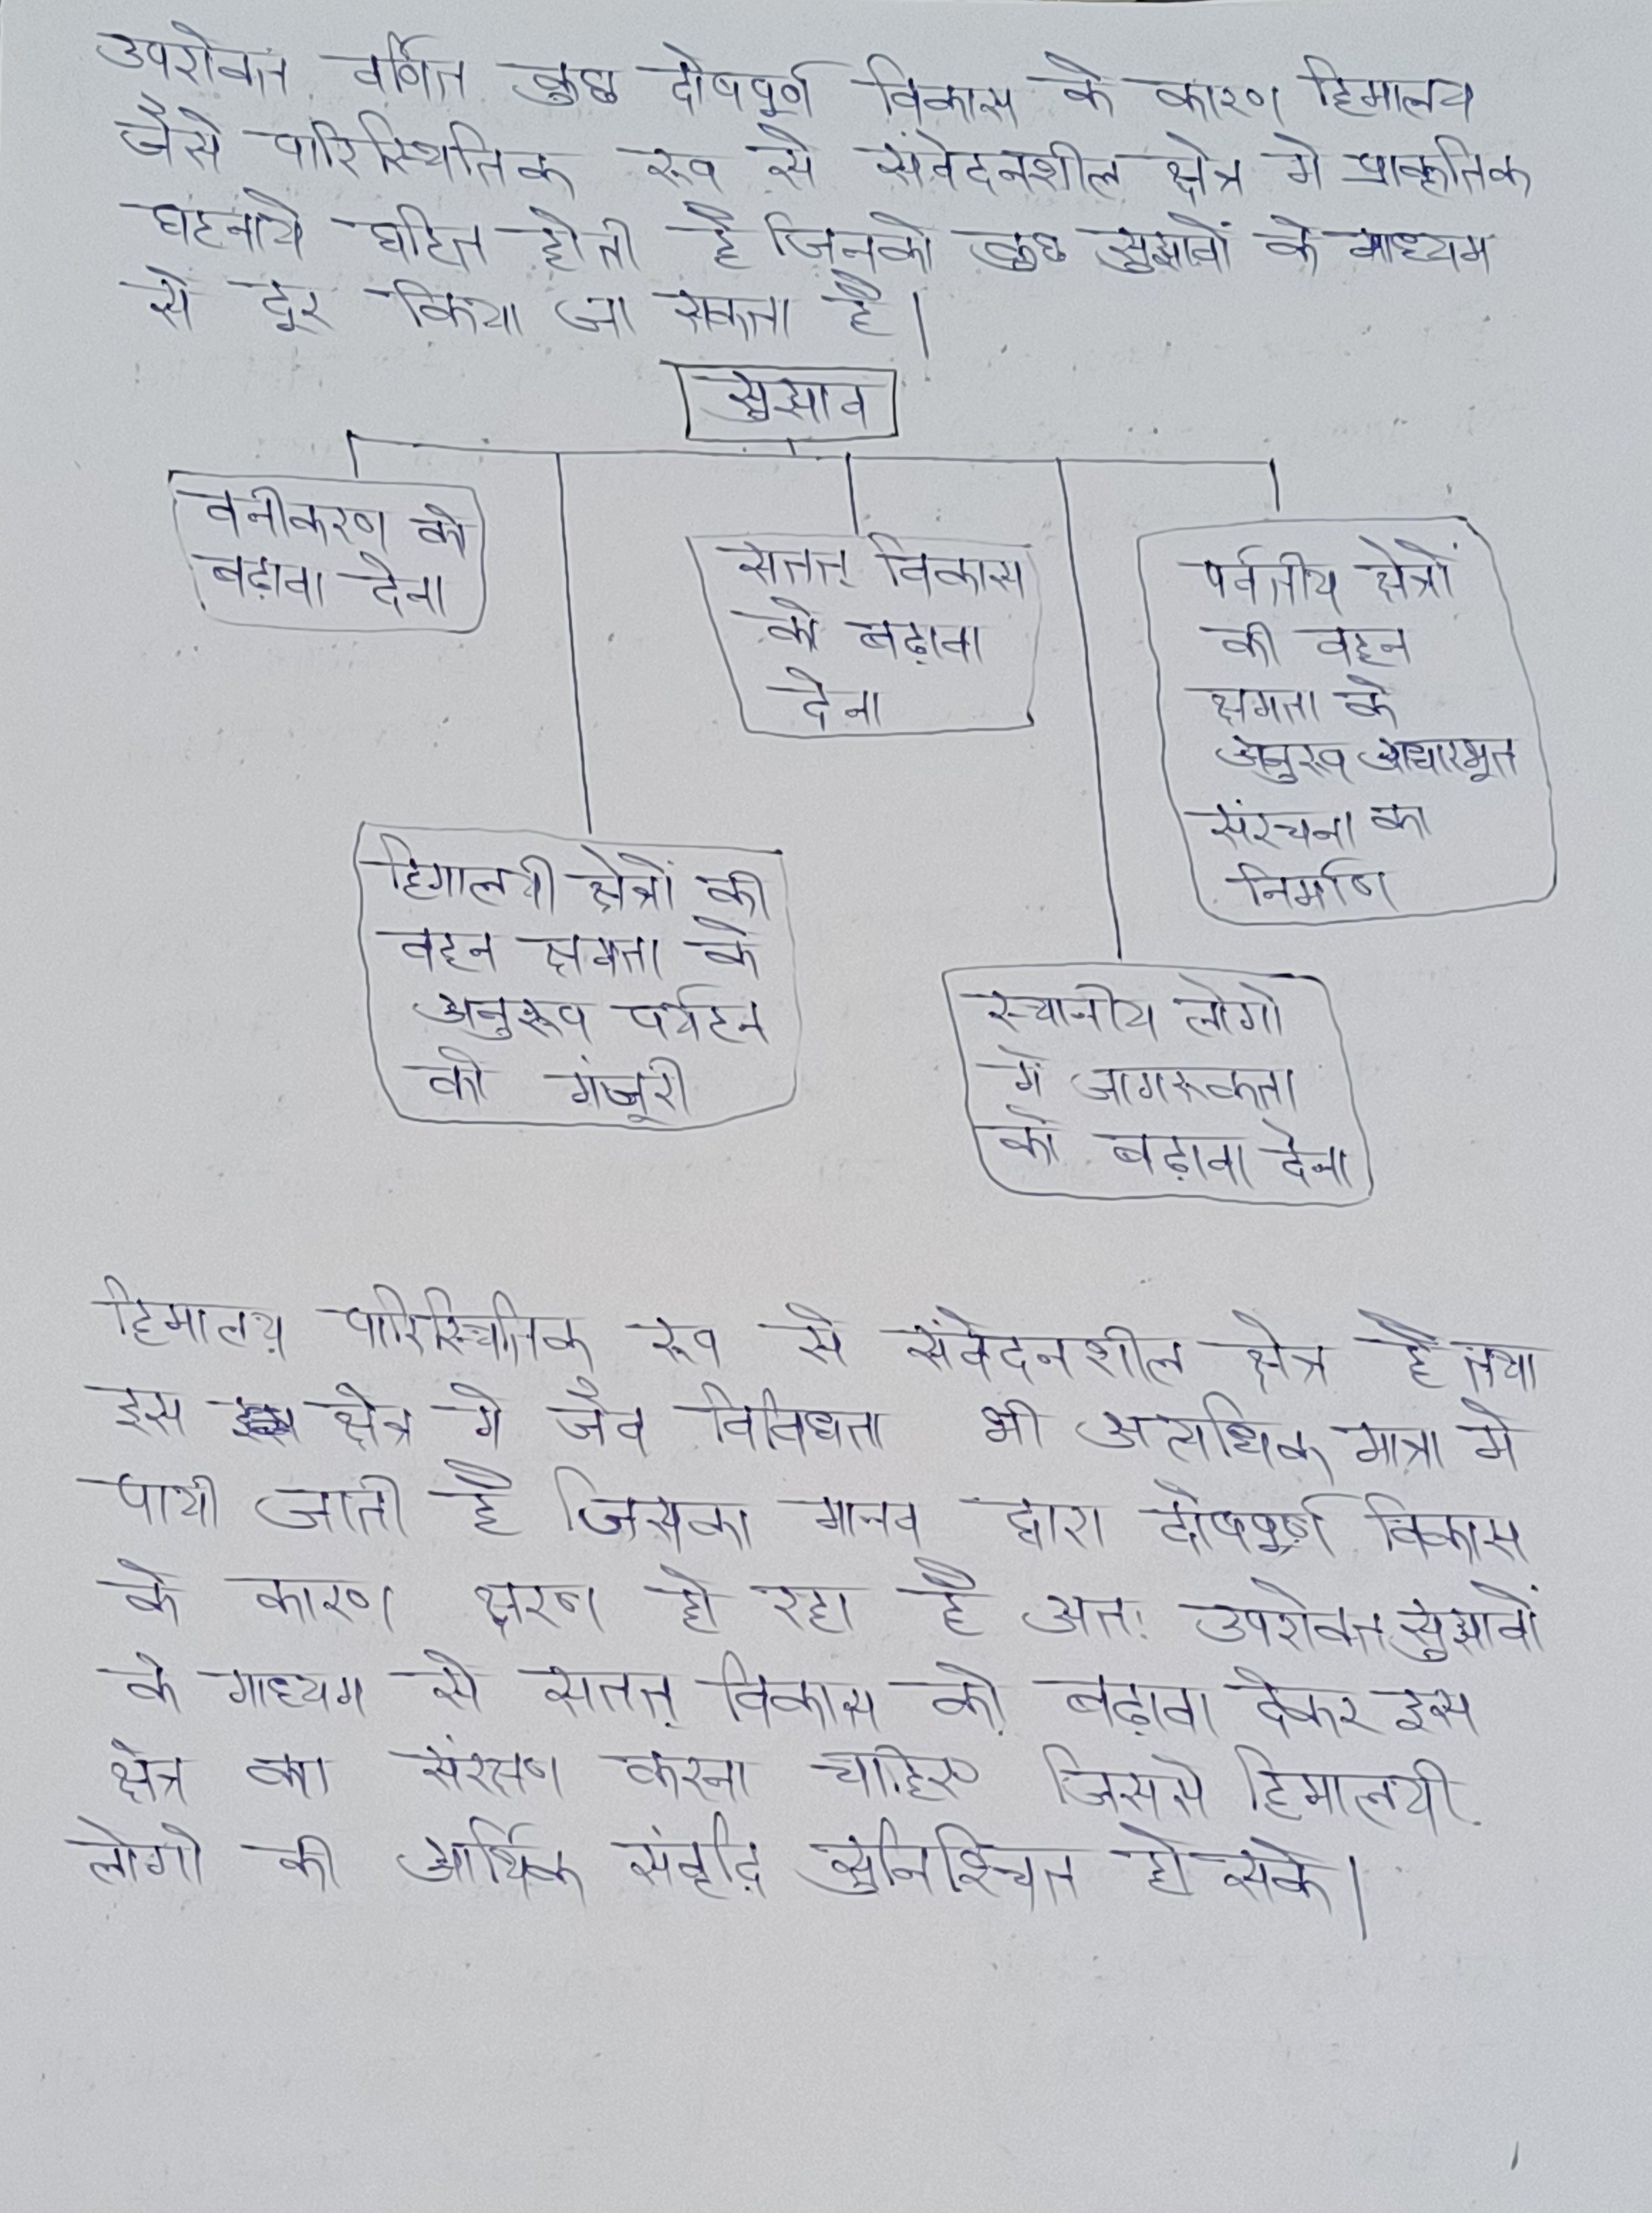 उपरोक्त वर्णित कुछ दोषपूर्ण विकास के कारण हिमालय
जैसे पारिस्थितिक रूप से संवेदनशील क्षेत्र मे प्राकृतिक
घटनाये घटित होती है जिनको कुछ सुझावों के माध्यम
से दूर किया जा सकता है।
सुझाव
वनीकरण को
बढ़ावा देना
सतत् विकास
को बढ़ावा
देना
पर्वतीय क्षेत्रों
की वहन
क्षमता के
अनुरूप आधारभूत
संरचना का
निर्माण
हिमालयी क्षेत्रों की
वहन क्षमता के
अनुरूप पर्यटन
को मंजूरी
स्थानीय लोगो
में जागरूकता
को बढ़ावा देना
हिमालय पारिस्थितिक रूप से संवेदनशील क्षेत्र है तथा
इस क्षेत्र मे जैव विविधता भी अत्यधिक मात्रा मे
पायी जाती है जिसका मानव द्वारा दोषपूर्ण विकास
के कारण क्षरण हो रहा है अतः उपरोक्त सुझावों
के माध्यम से सतत् विकास को बढ़ावा देकर इस
क्षेत्र का संरक्षण करना चाहिए जिससे हिमालयी
लोगो की आर्थिक संवृद्धि सुनिश्चित हो सके।